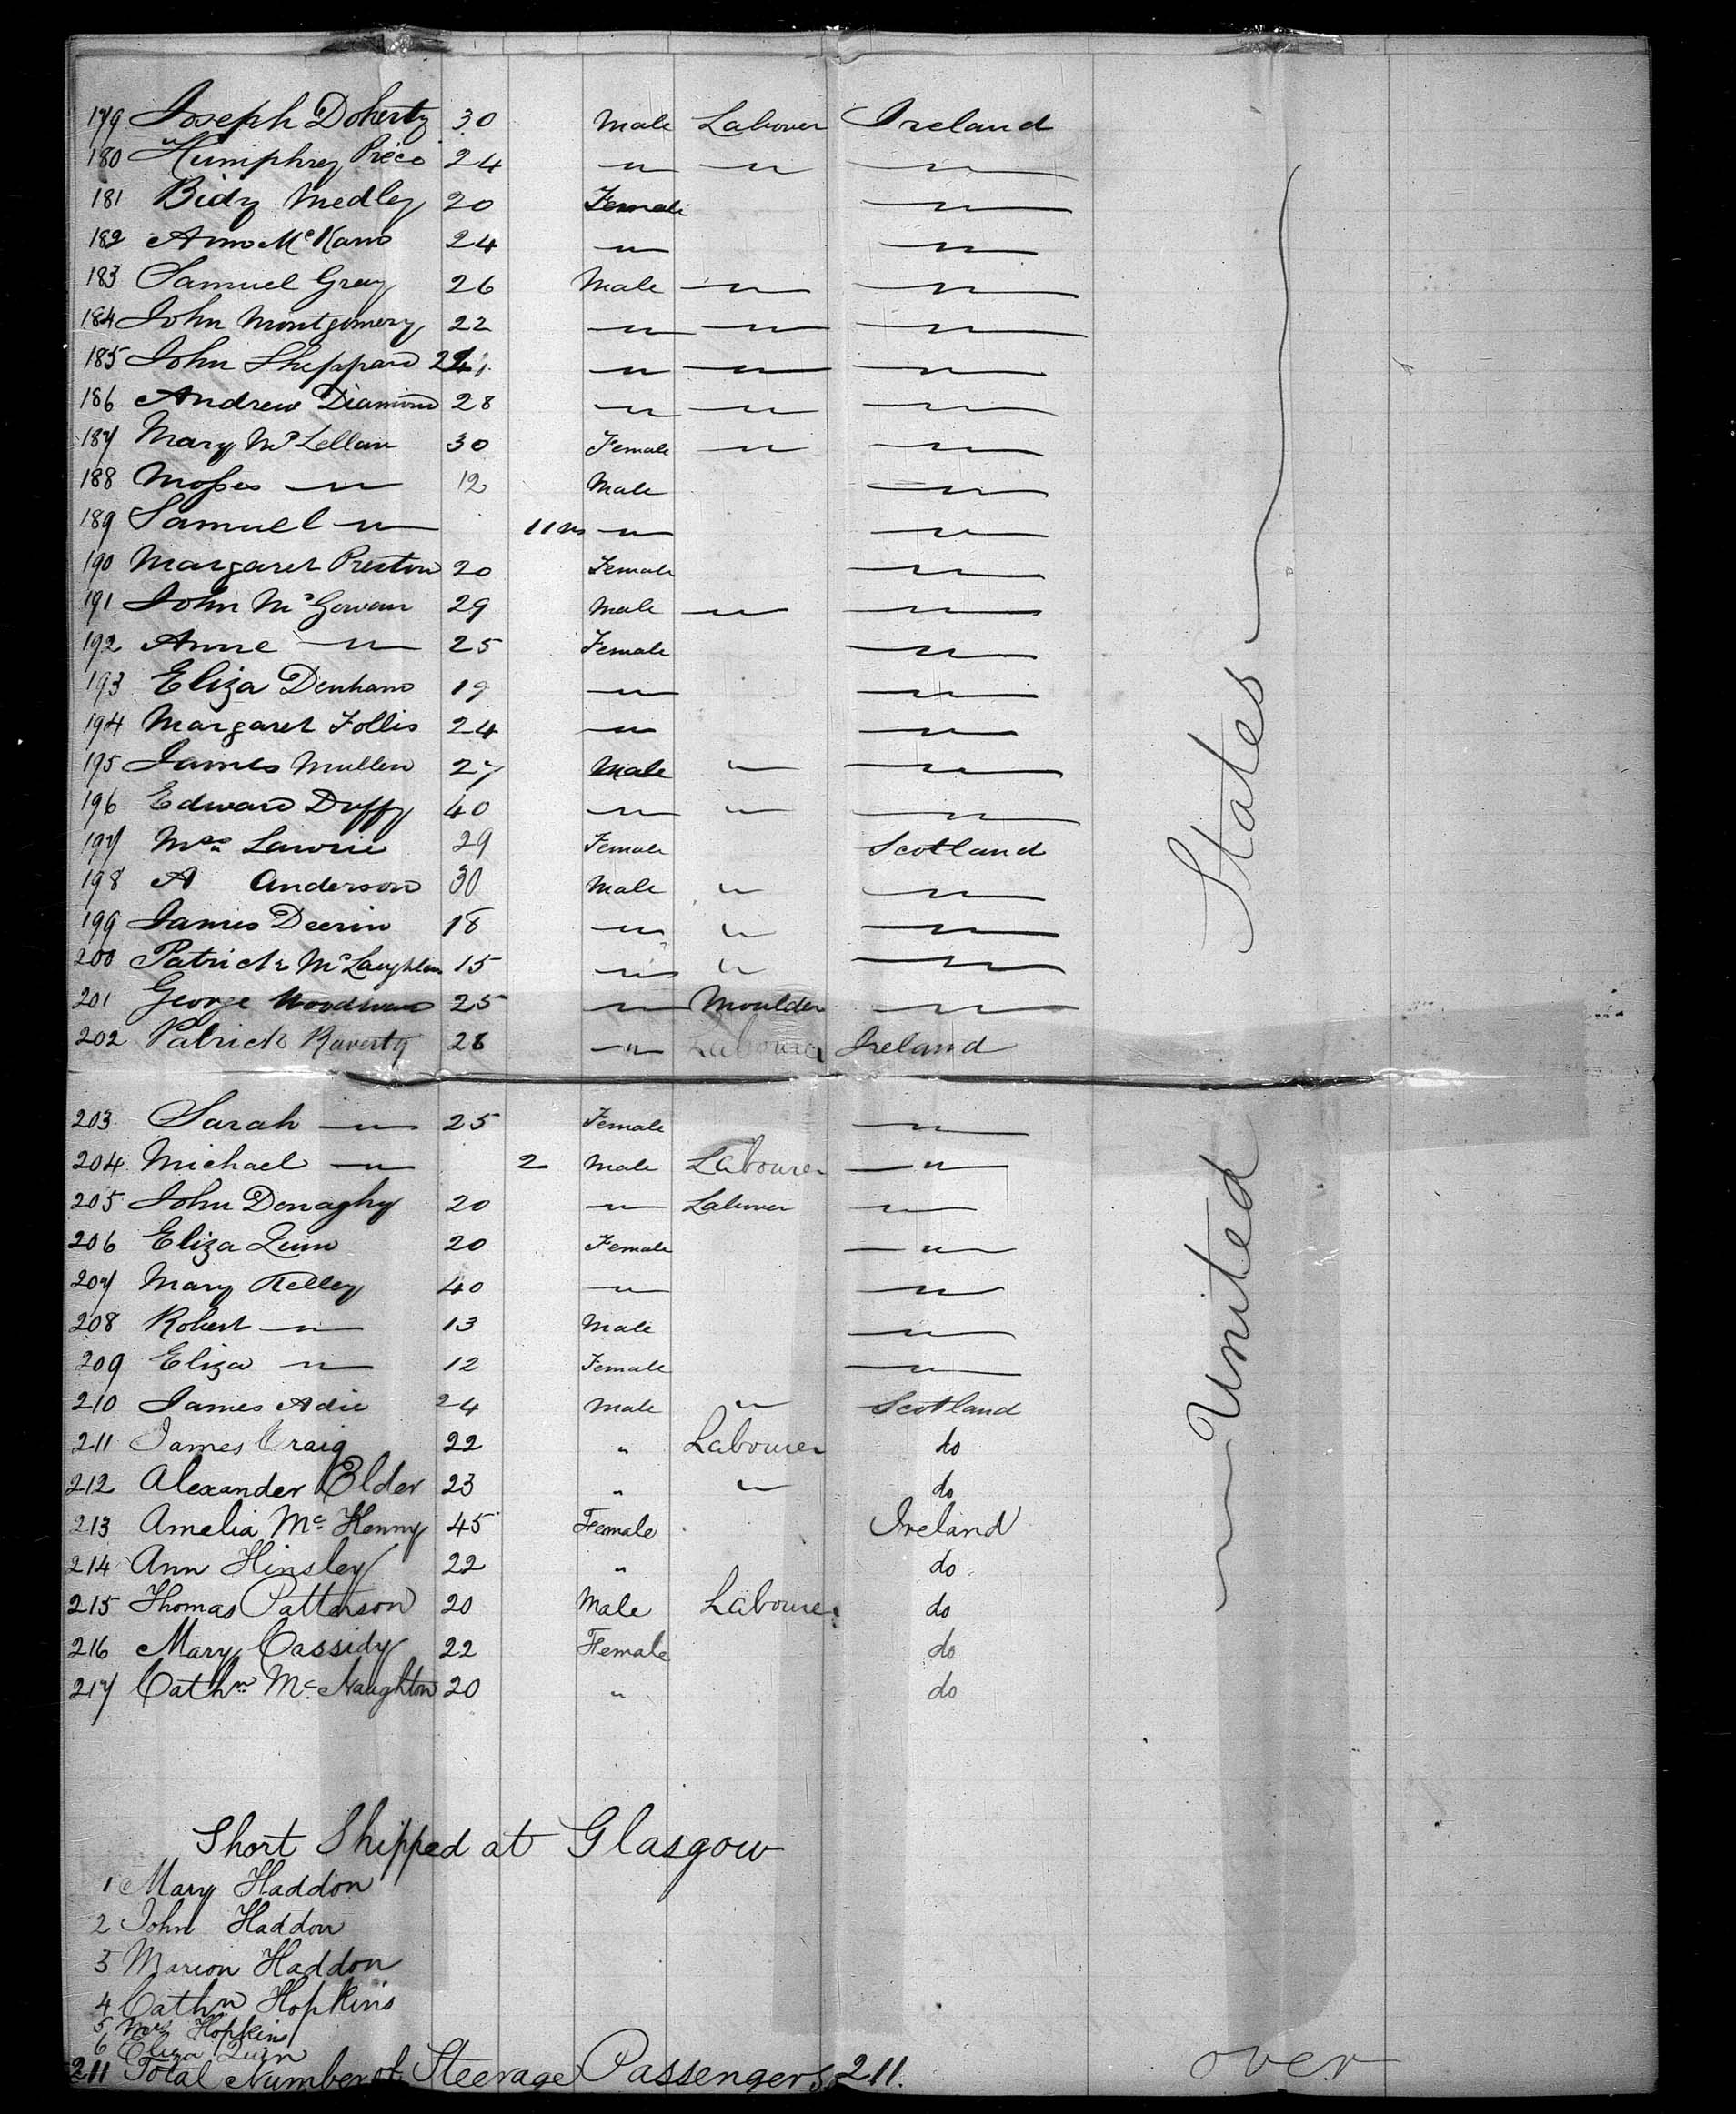 179 Joseph Doherty 30 Male Labourer Ireland
180 Humphrey Price 24 " " "
181 Bidy Medley 20 Female "
182 Ann McKane 24 " "
183 Samuel Gray 26 Male " "
184 John Montgomery 22 " " "
185 John Sheppard " " "
186 Andrew Diamond 28 " " "
187 Mary McLellan 30 Female " "
188 Moses " 12 Male "
189 Samuel " 11 ms " "
190 Margaret Preston 20 Female "
191 John McGowan 29 Male " "
192 Anne " 25 Female "
193 Eliza Denham 19 " "
194 Margaret Follis 24 " "
195 James Mullen 27 Male " "
196 Edward Duffy 40 " " "
197 Mrs Lawrie 29 Female Scotland
198 A Anderson 30 Male " "
199 James Deerin 18 " " "
200 Patrick McLaughlan 15 " " "
201 George Woodward 25 " Moulder "
202 Patrick Raverty 28 " Labourer Ireland
203 Sarah " 25 Female "
204 Michael " 2 Male Labourer "
205 John Donaghy 20 " Labourer "
206 Eliza Quin 20 Female "
207 Mary Kelley 40 " "
208 Robert " 13 Male "
209 Eliza " 12 Female "
210 James Adie 24 Male " Scotland
211 James Craig 22 " Labourer do
212 Alexander Elder 23 " " do
213 Amelia Mc Kenny 45 Female Ireland
214 Ann Hinsley 22 " do
215 Thomas Patterson 20 Male Labourer do
216 Mary Cassidy 22 Female do
217 Cathn Mc Naughton 20 " do
United States
Short Shipped at Glasgow
1 Mary Haddon
2 John Haddon
3 Marion Haddon
4 Cathn Hopkins
5 Mrs Hopkins
6 Eliza Quin
211 Total Number of Steerage Passengers 211.
over